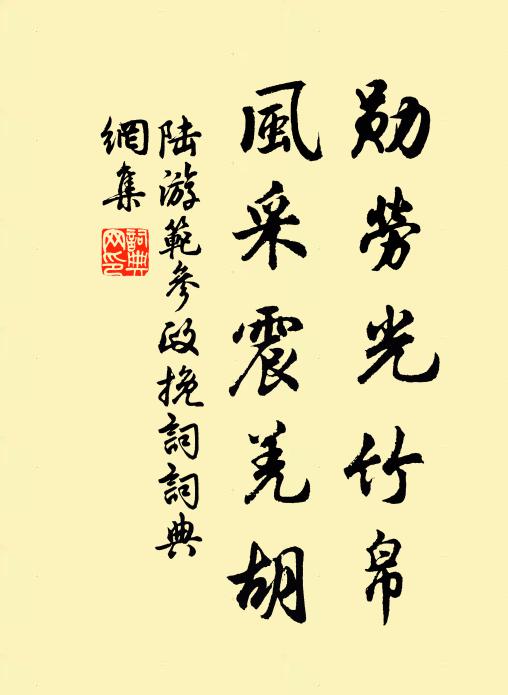 勛勞光竹帛
風采震羌胡
陸游範參政挽詞詞典
網集
詞典
网印